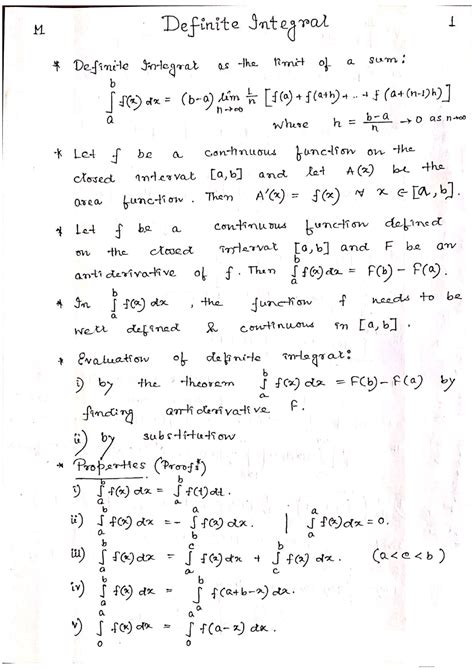 M Definite Integral 1
* Definite Integral as the limit of a sum:
∫_a^b f(x) dx = (b-a) lim_{n→∞} 1/n [f(a) + f(a+h) + .. + f(a+(n-1)h)]
where h = (b-a)/n → 0 as n→∞
* Let f be a continuous function on the
closed interval [a,b] and let A(x) be the
area function. Then A'(x) = f(x) ∀ x ∈ [a,b].
* Let f be a continuous function defined
on the closed interval [a,b] and F be an
antiderivative of f. Then ∫_a^b f(x) dx = F(b) - F(a).
* In ∫_a^b f(x) dx , the function f needs to be
well defined & continuous in [a,b].
* Evaluation of definite integral:
i) by the theorem ∫_a^b f(x) dx = F(b) - F(a) by
finding antiderivative F.
ii) by substitution
* Properties (Proofs*)
i) ∫_a^b f(x) dx = ∫_a^b f(t) dt.
ii) ∫_a^b f(x) dx = - ∫_b^a f(x) dx. | ∫_a^a f(x) dx = 0.
iii) ∫_a^b f(x) dx = ∫_a^c f(x) dx + ∫_c^b f(x) dx. (a<c<b)
iv) ∫_a^b f(x) dx = ∫_a^b f(a+b-x) dx.
v) ∫_0^a f(x) dx = ∫_0^a f(a-x) dx.